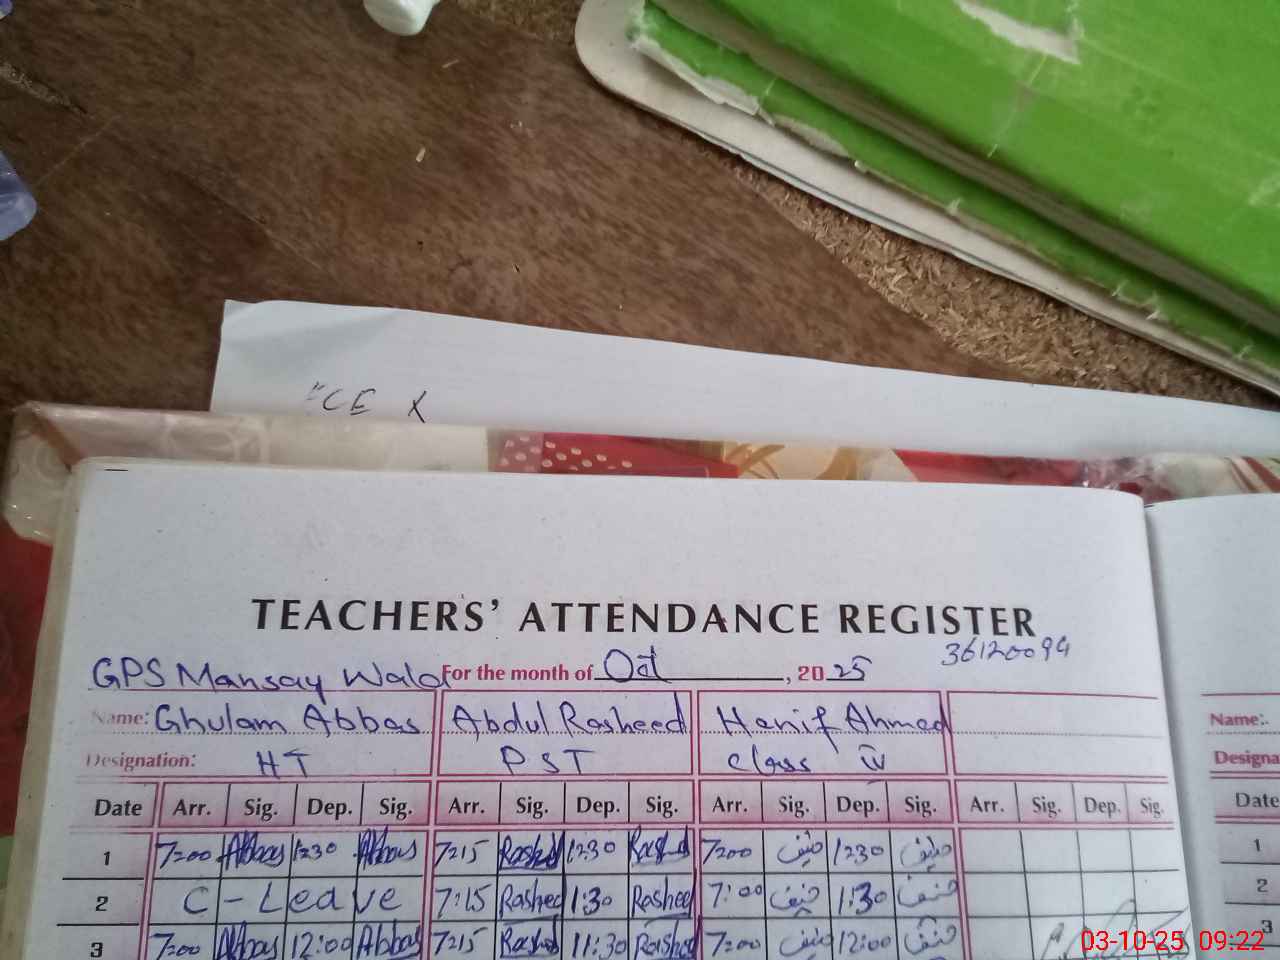 "CE X
TEACHERS' ATTENDANCE REGISTER
36120094
GPS Mansay Wala For the month of Oct, 2025
Name: Ghulam Abbas Abdul Rasheed Hanif Ahmed Name:
Designation: HT PST Class IV Designa
Date Arr. Sig. Dep. Sig. Arr. Sig. Dep. Sig. Arr. Sig. Dep. Sig. Arr. Sig. Dep. Sig. Date
1 7:00 Abbas 1:30 Abbas 7:15 Rasheed 1:30 Rasheed 7:00 حنیف 1:30 حنیف 1
2 C-Leave 7:15 Rasheed 1:30 Rasheed 7:00 حنیف 1:30 حنیف 2
3 7:00 Abbas 12:00 Abbas 7:15 Rasheed 11:30 Rasheed 7:00 حنیف 12:00 حنیف 3
03-10-25 09:22